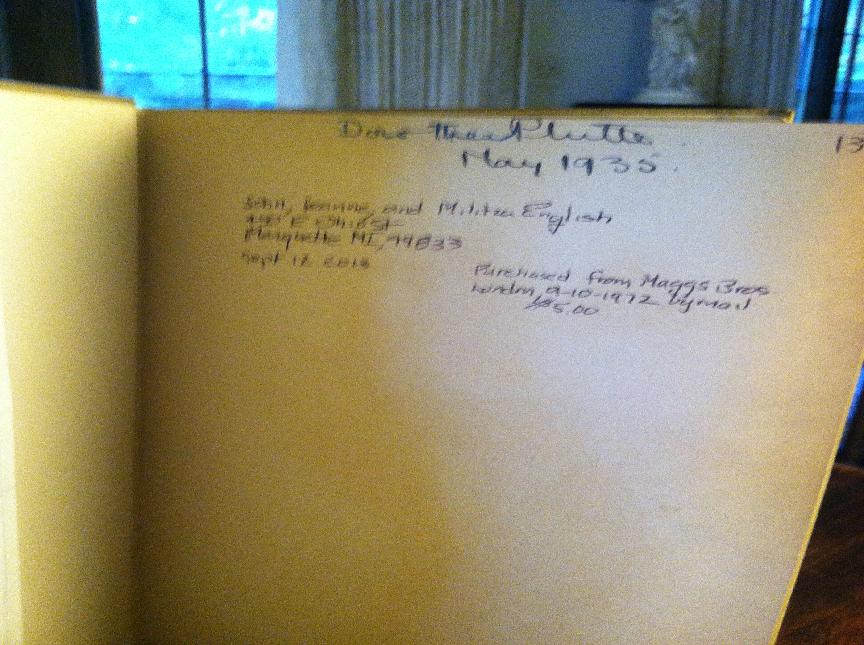 May 1935.
13
John, Jeanne, and Militza English
E Ohio St
Marquette MI, 49855
Sept 12 2013
Purchased from Maggs Bros
London, 9-10-1972 by mail
$5.00